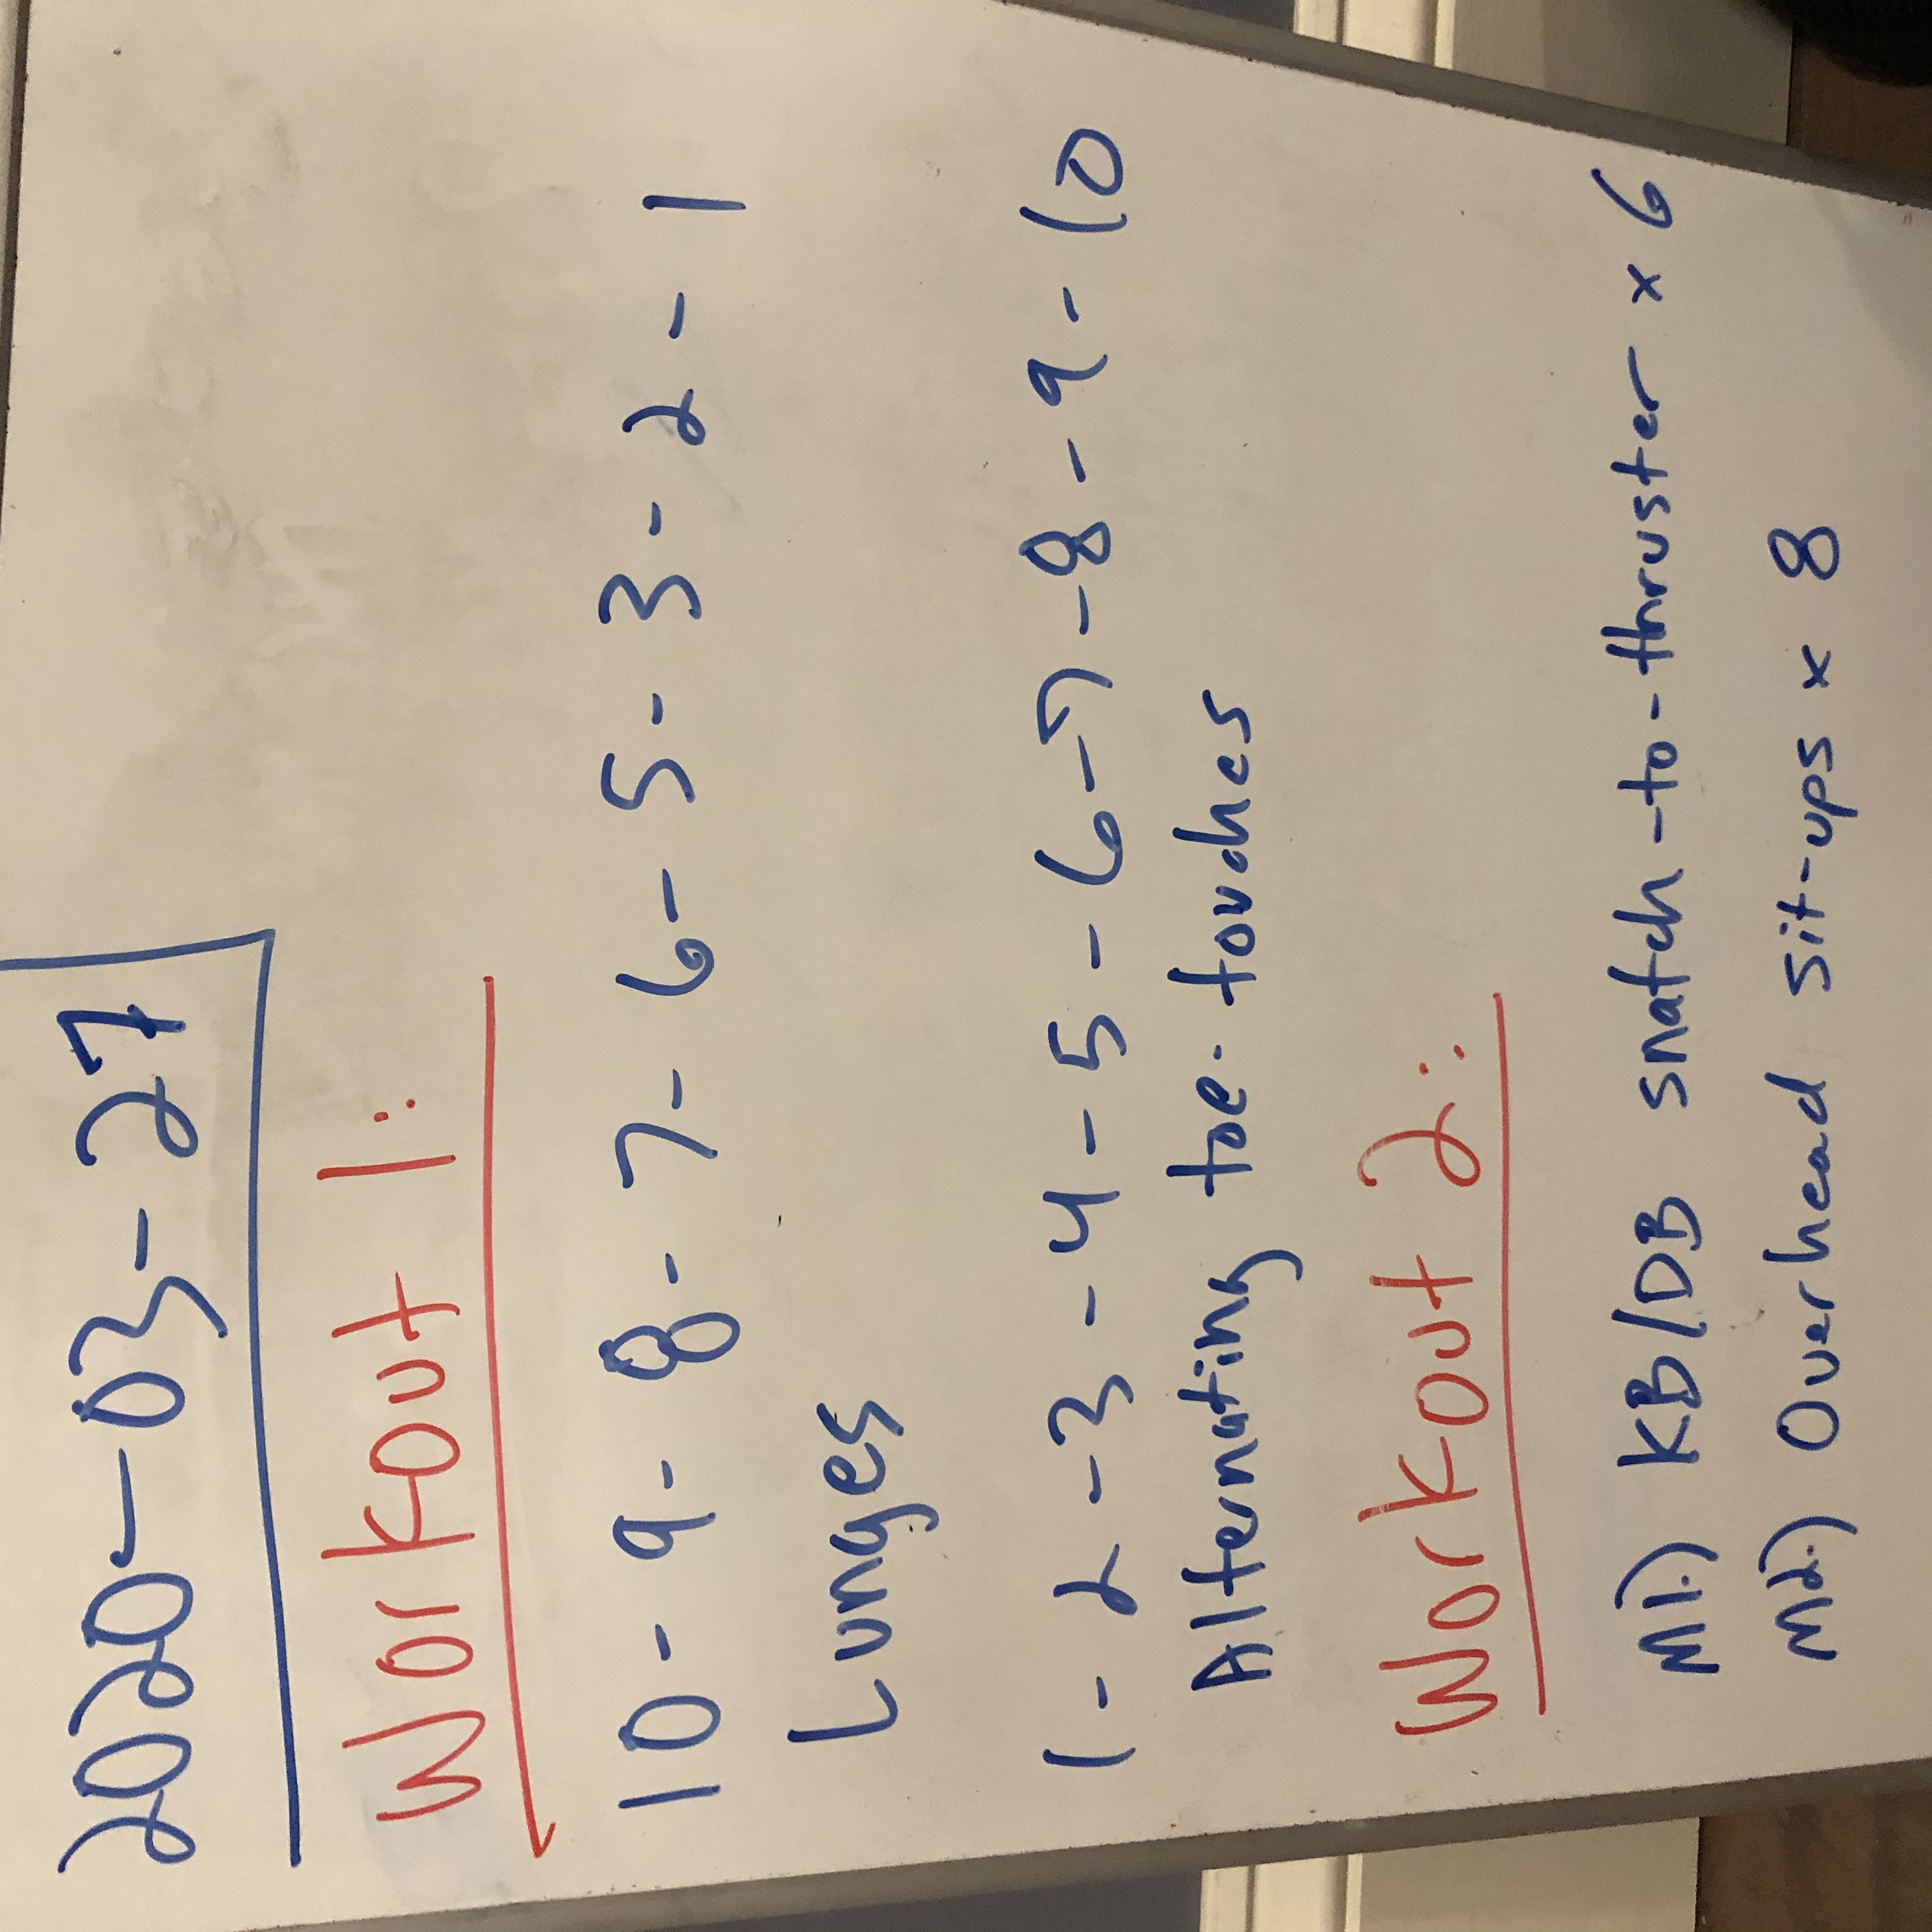 2020-03-27
Workout 1:
10 - 9 - 8 - 7 - 6 - 5 - 3 - 2 - 1
Lunges
1 - 2 - 3 - 4 - 5 - 6 - 7 - 8 - 9 - 10
Alternating toe-touches
Workout 2:
M1.) KB/DB snatch-to-thruster x 6
M2.) Overhead sit-ups x 8